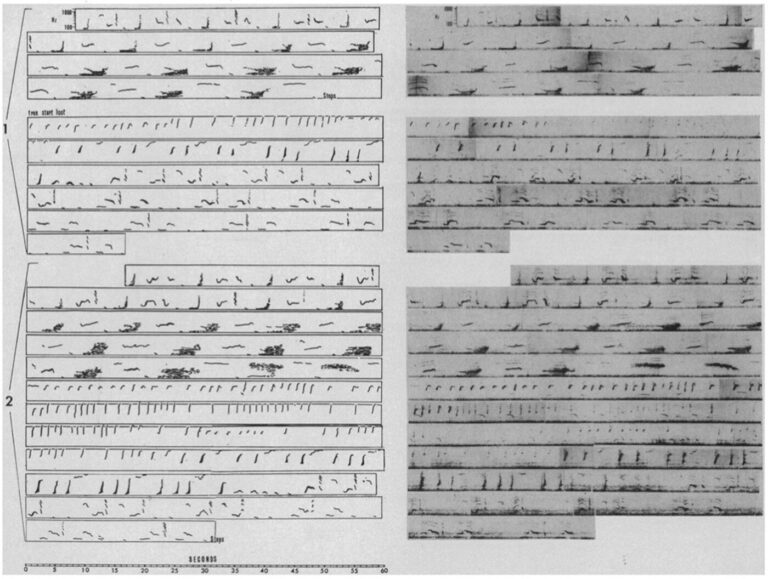 1000
Hz
100
Stops
true start lost
1
2
Stops
SECONDS
0 5 10 15 20 25 30 35 40 45 50 55 60